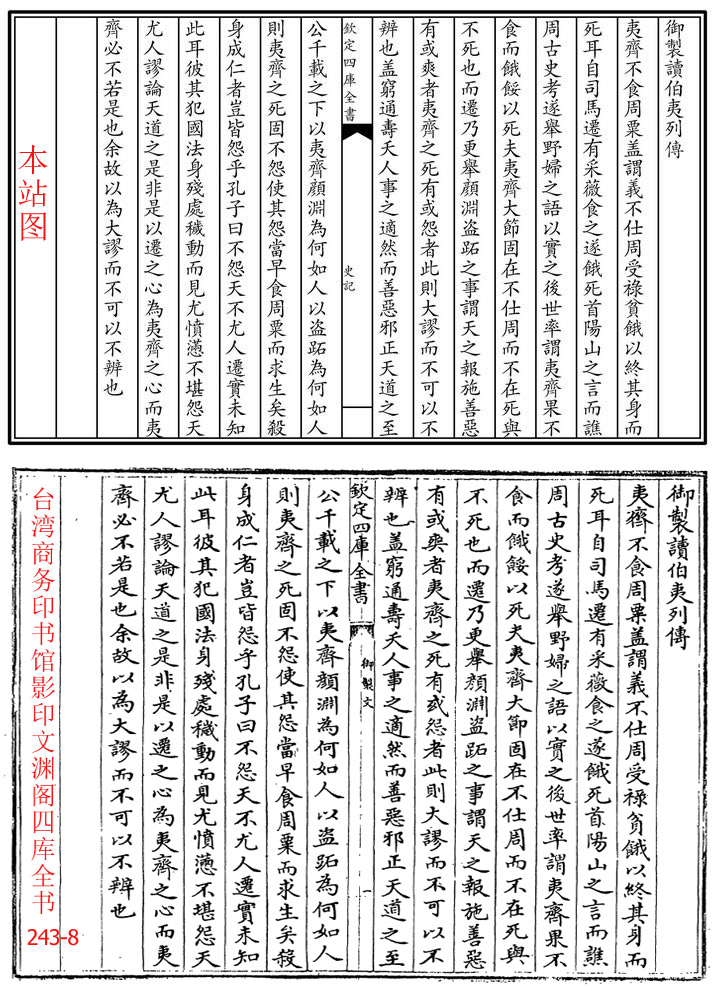 御製讀伯夷列傳
夷齊不食周粟盖謂義不仕周受祿貧餓以終其身而
死耳自司馬遷有采薇食之遂餓死首陽山之言而譙
周古史考遂舉野婦之語以實之後世率謂夷齊果不
食而餓餒以死夫夷齊大節固在不仕周而不在死與
不死也而遷乃更舉顔淵盗跖之事謂天之報施善惡
有或爽者夷齊之死有或怨者此則大謬而不可以不
辨也盖窮通壽夭人事之適然而善惡邪正天道之至
欽定四庫全書
史記
公千載之下以夷齊顔淵為何如人以盗跖為何如人
則夷齊之死固不怨使其怨當早食周粟而求生矣殺
身成仁者豈皆怨乎孔子曰不怨天不尤人遷實未知
此耳彼其犯國法身殘處穢動而見尤憤懣不堪怨天
尤人謬論天道之是非是以遷之心為夷齊之心而夷
齊必不若是也余故以為大謬而不可以不辨也
本站图
御製讀伯夷列傳
夷齊不食周粟盖謂義不仕周受祿貧餓以終其身而
死耳自司馬遷有采薇食之遂餓死首陽山之言而譙
周古史考遂舉野婦之語以實之後世率謂夷齊果不
食而餓餒以死夫夷齊大節固在不仕周而不在死與
不死也而遷乃更舉顔淵盗跖之事謂天之報施善惡
有或爽者夷齊之死有或怨者此則大謬而不可以不
辨也盖窮通壽夭人事之適然而善惡邪正天道之至
欽定四庫全書
御製文
一
公千載之下以夷齊顔淵為何如人以盗跖為何如人
則夷齊之死固不怨使其怨當早食周粟而求生矣殺
身成仁者豈皆怨乎孔子曰不怨天不尤人遷實未知
此耳彼其犯國法身殘處穢動而見尤憤懣不堪怨天
尤人謬論天道之是非是以遷之心為夷齊之心而夷
齊必不若是也余故以為大謬而不可以不辨也
台湾商务印书馆影印文渊阁四库全书
243-8